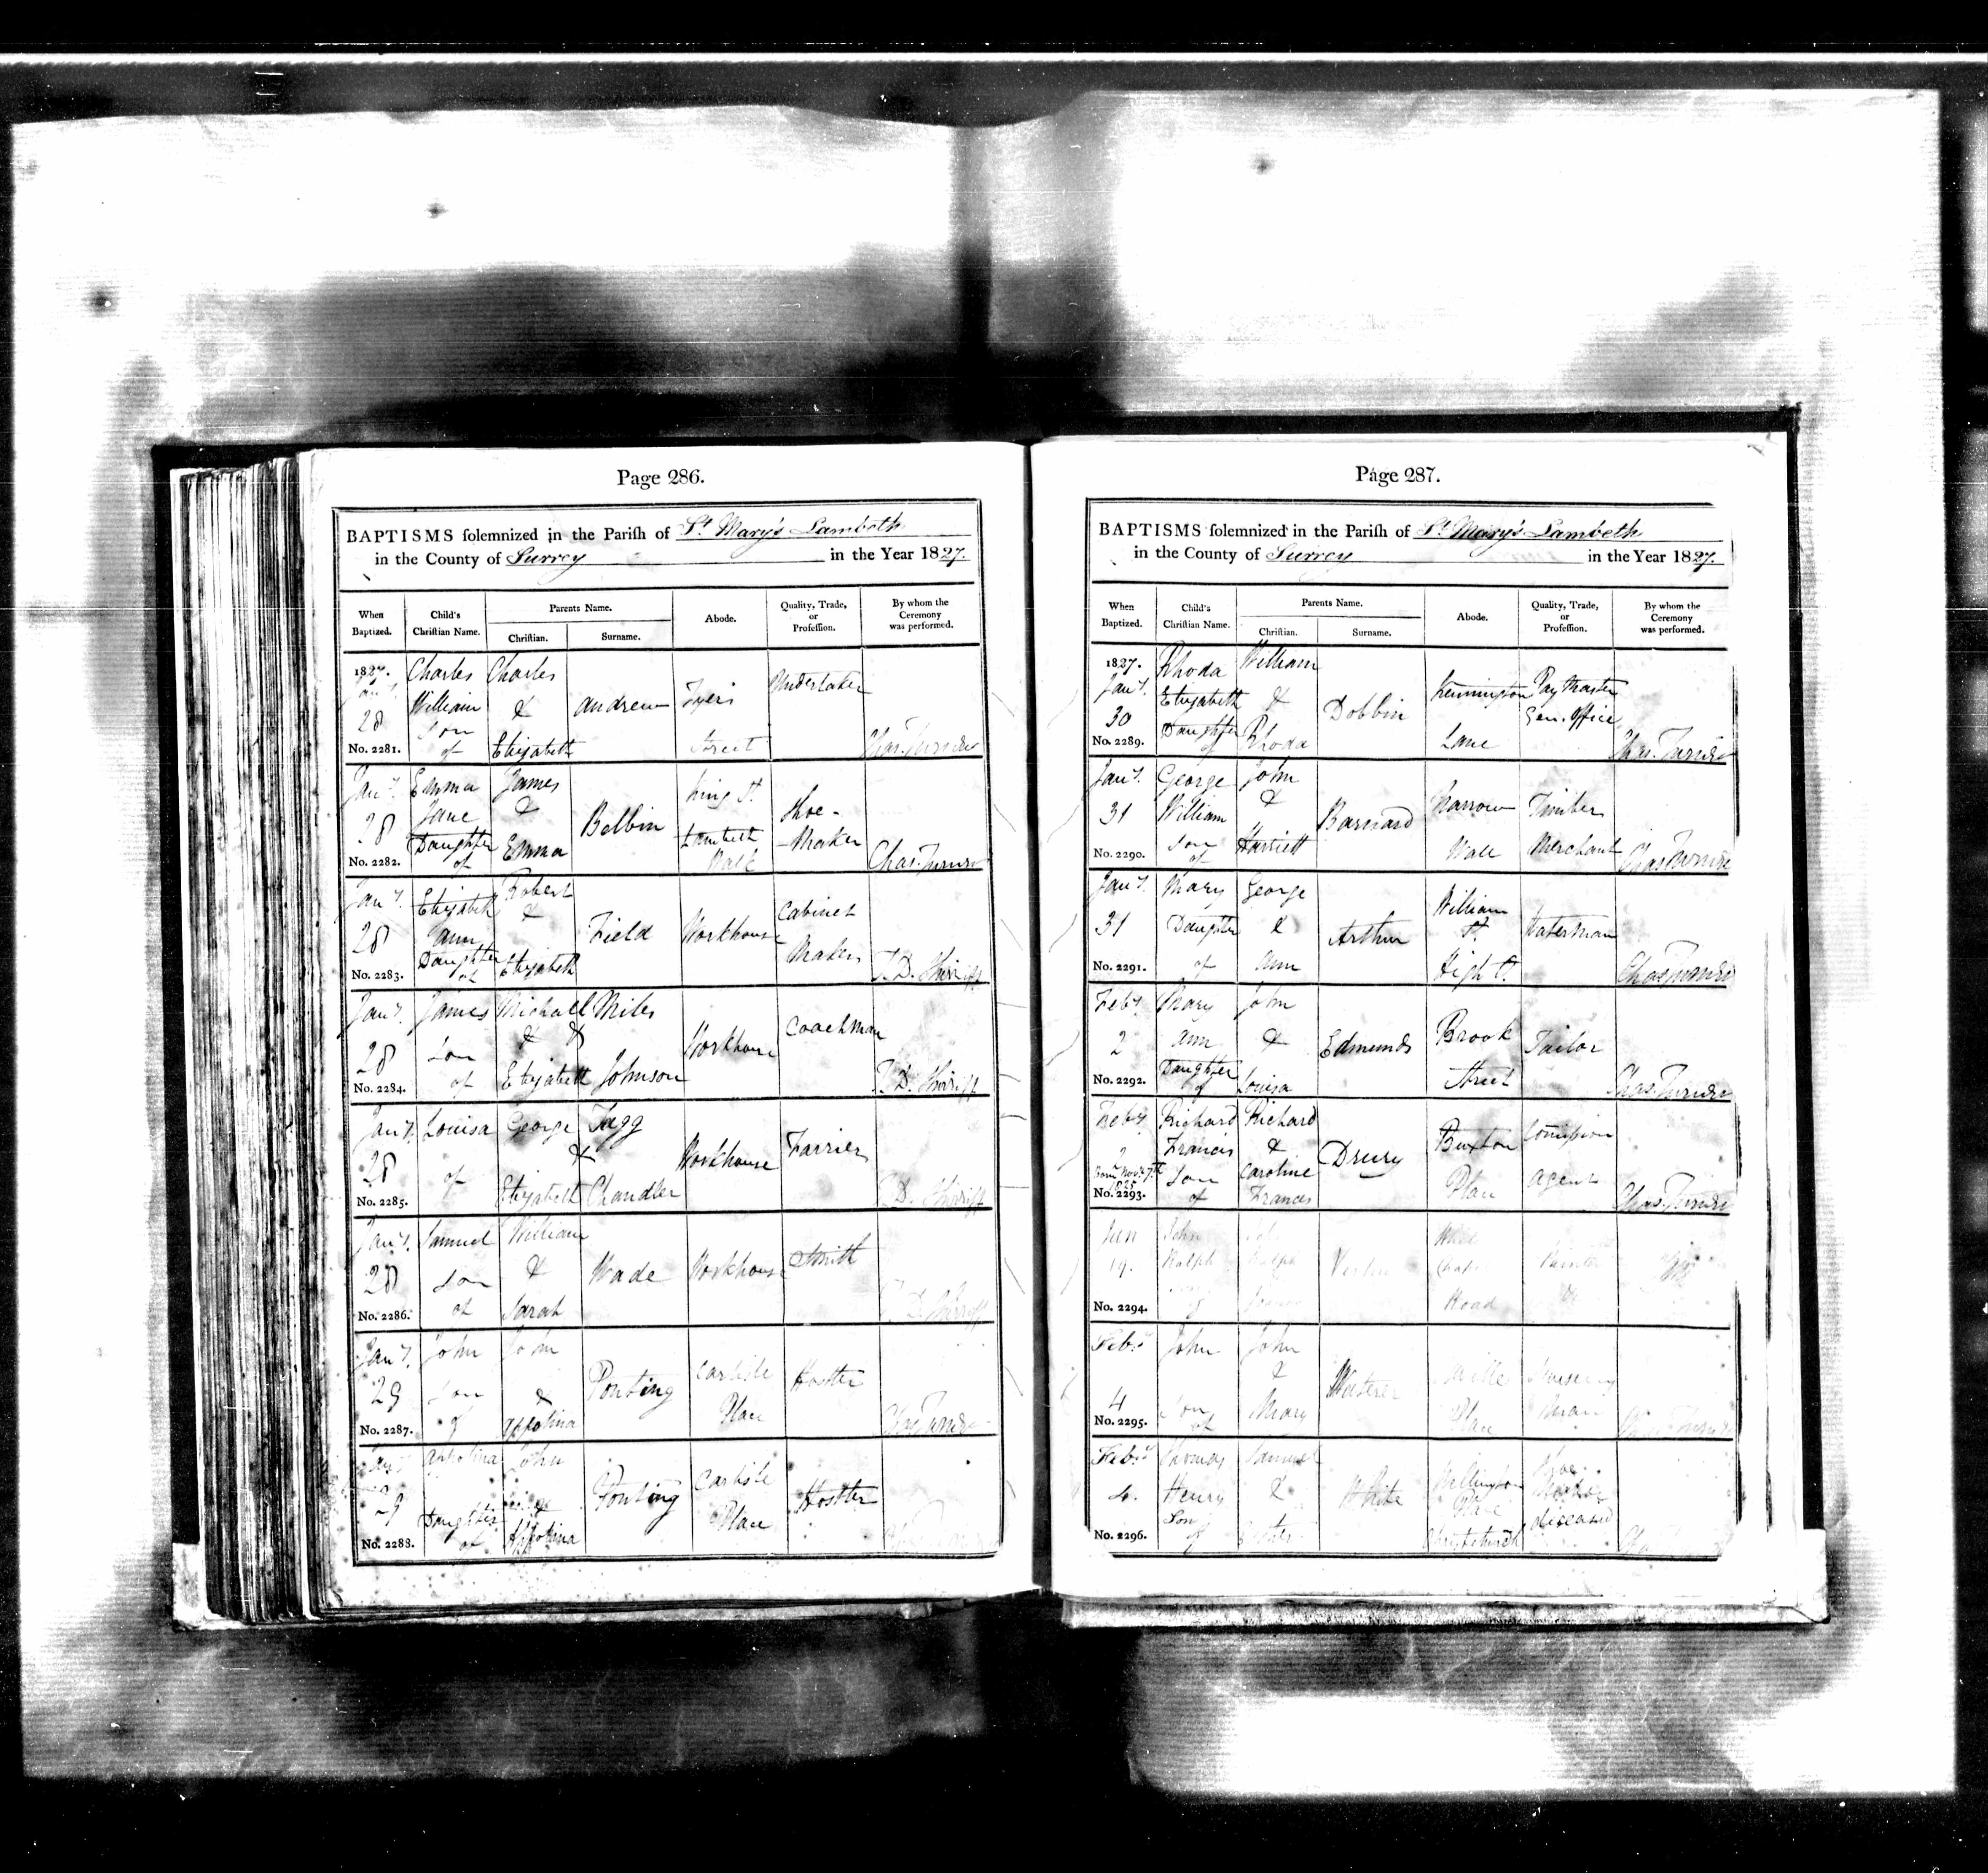 Page 286.
BAPTISMS solemnized in the Parish of St. Mary's Lambeth
in the County of Surrey in the Year 1827.
When Baptized. Child's Christian Name. Parents Name. Christian. Surname. Abode. Quality, Trade, or Profession. By whom the Ceremony was performed.
1827. Jany. 28 No. 2281. Charles William Son of Charles & Elizabeth Andrew Tyers Street Undertaker Chas. Turner
Jany. 28 No. 2282. Emma Jane Daughter of James & Emma Belbin King St. Lambeth Walk Shoe-Maker Chas. Turner
Jany. 28 No. 2283. Elizabeth Ann Daughter of Robert & Elizabeth Field Workhouse Cabinet Maker T. D. Shirriff
Jany. 28 No. 2284. James Son of Michall & Elizabeth Miles & Johnson Workhouse Coachman T. D. Shirriff
Jany. 28 No. 2285. Louisa of George Elizabeth Tagg & Chandler Workhouse Farrier T. D. Shirriff
Jany. 28 No. 2286. Samuel Son of William & Sarah Wade Workhouse Smith T. D. Shirriff
Jany. 29 No. 2287. John Son of John & Appolina Ponting Carlisle Place Hostler Chas Turner
Jany 29 No. 2288. Appolina Daughter of John & Appolina Ponting Carlisle Place Hostler
Page 287.
BAPTISMS solemnized in the Parish of St. Mary's Lambeth
in the County of Surrey in the Year 1827.
When Baptized. Child's Christian Name. Parents Name. Christian. Surname. Abode. Quality, Trade, or Profession. By whom the Ceremony was performed.
1827. Jany. 30 No. 2289. Rhoda Elizabeth Daughter of William & Rhoda Dobbin Kennington Lane Pay Master Gen. Office Chas. Turner
Jany. 31 No. 2290. George William Son of John & Harriett Barnard Narrow Wall Timber Merchant Chas Turner
Jany. 31 No. 2291. Mary Daughter of George & Ann Arthur William St. High St. Waterman Chas Turner
Feby. 2 No. 2292. Mary Ann Daughter of John & Louisa Edmunds Brook Street Tailor Chas. Turner
Feby 2 Born Novr. 7th 1825 No. 2293. Richard Francis Son of Richard & Caroline Frances Drury Buxton Place Comission Agent Chas. Turner
19. No. 2294. John Ralph of Ralph Road Painter
Feby 4 No. 2295. John Son of John & Mary Waterer Place Nursery Man Chas Turner
Feby 4. No. 2296. Thomas Henry Son of Samuel & White Wellington Place Christchurch Shoe Maker diceased